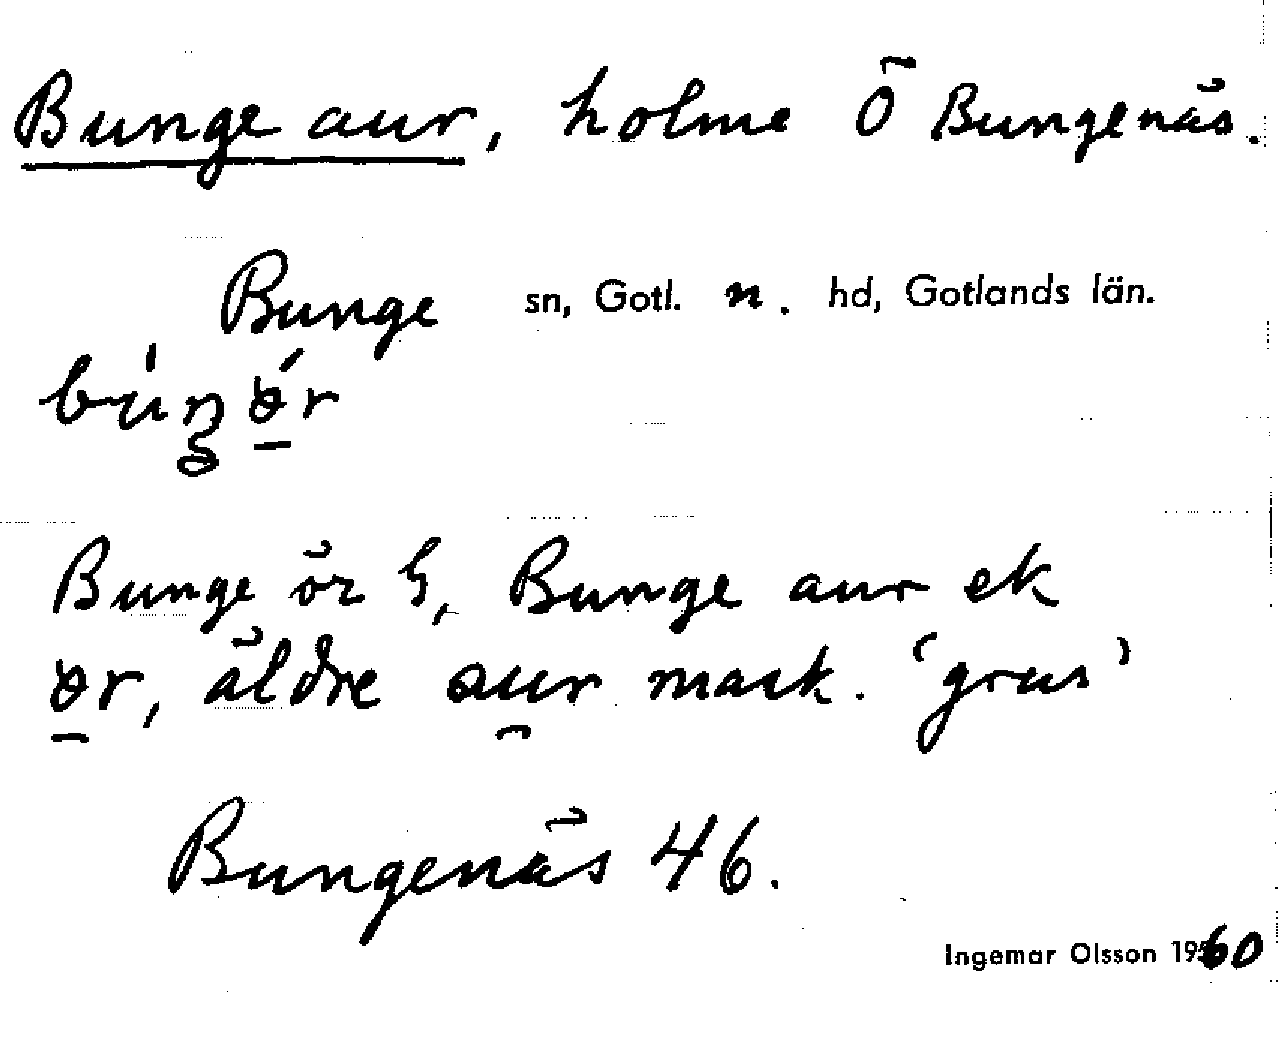 Bunge aur, holme Ö Bungenäs.
Bunge sn, Gotl. n. hd, Gotlands län.
Bunge ör G, Bunge aur ek
ər, äldre aur mask. 'grus'
Bungenäs 46.
Ingemar Olsson 1960